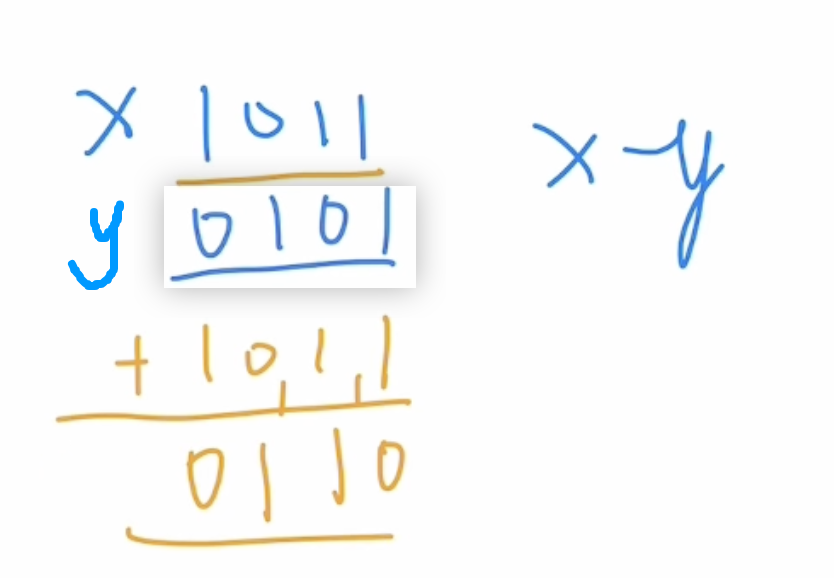 x 1011 x-y
y 0101
+ 1011
0110